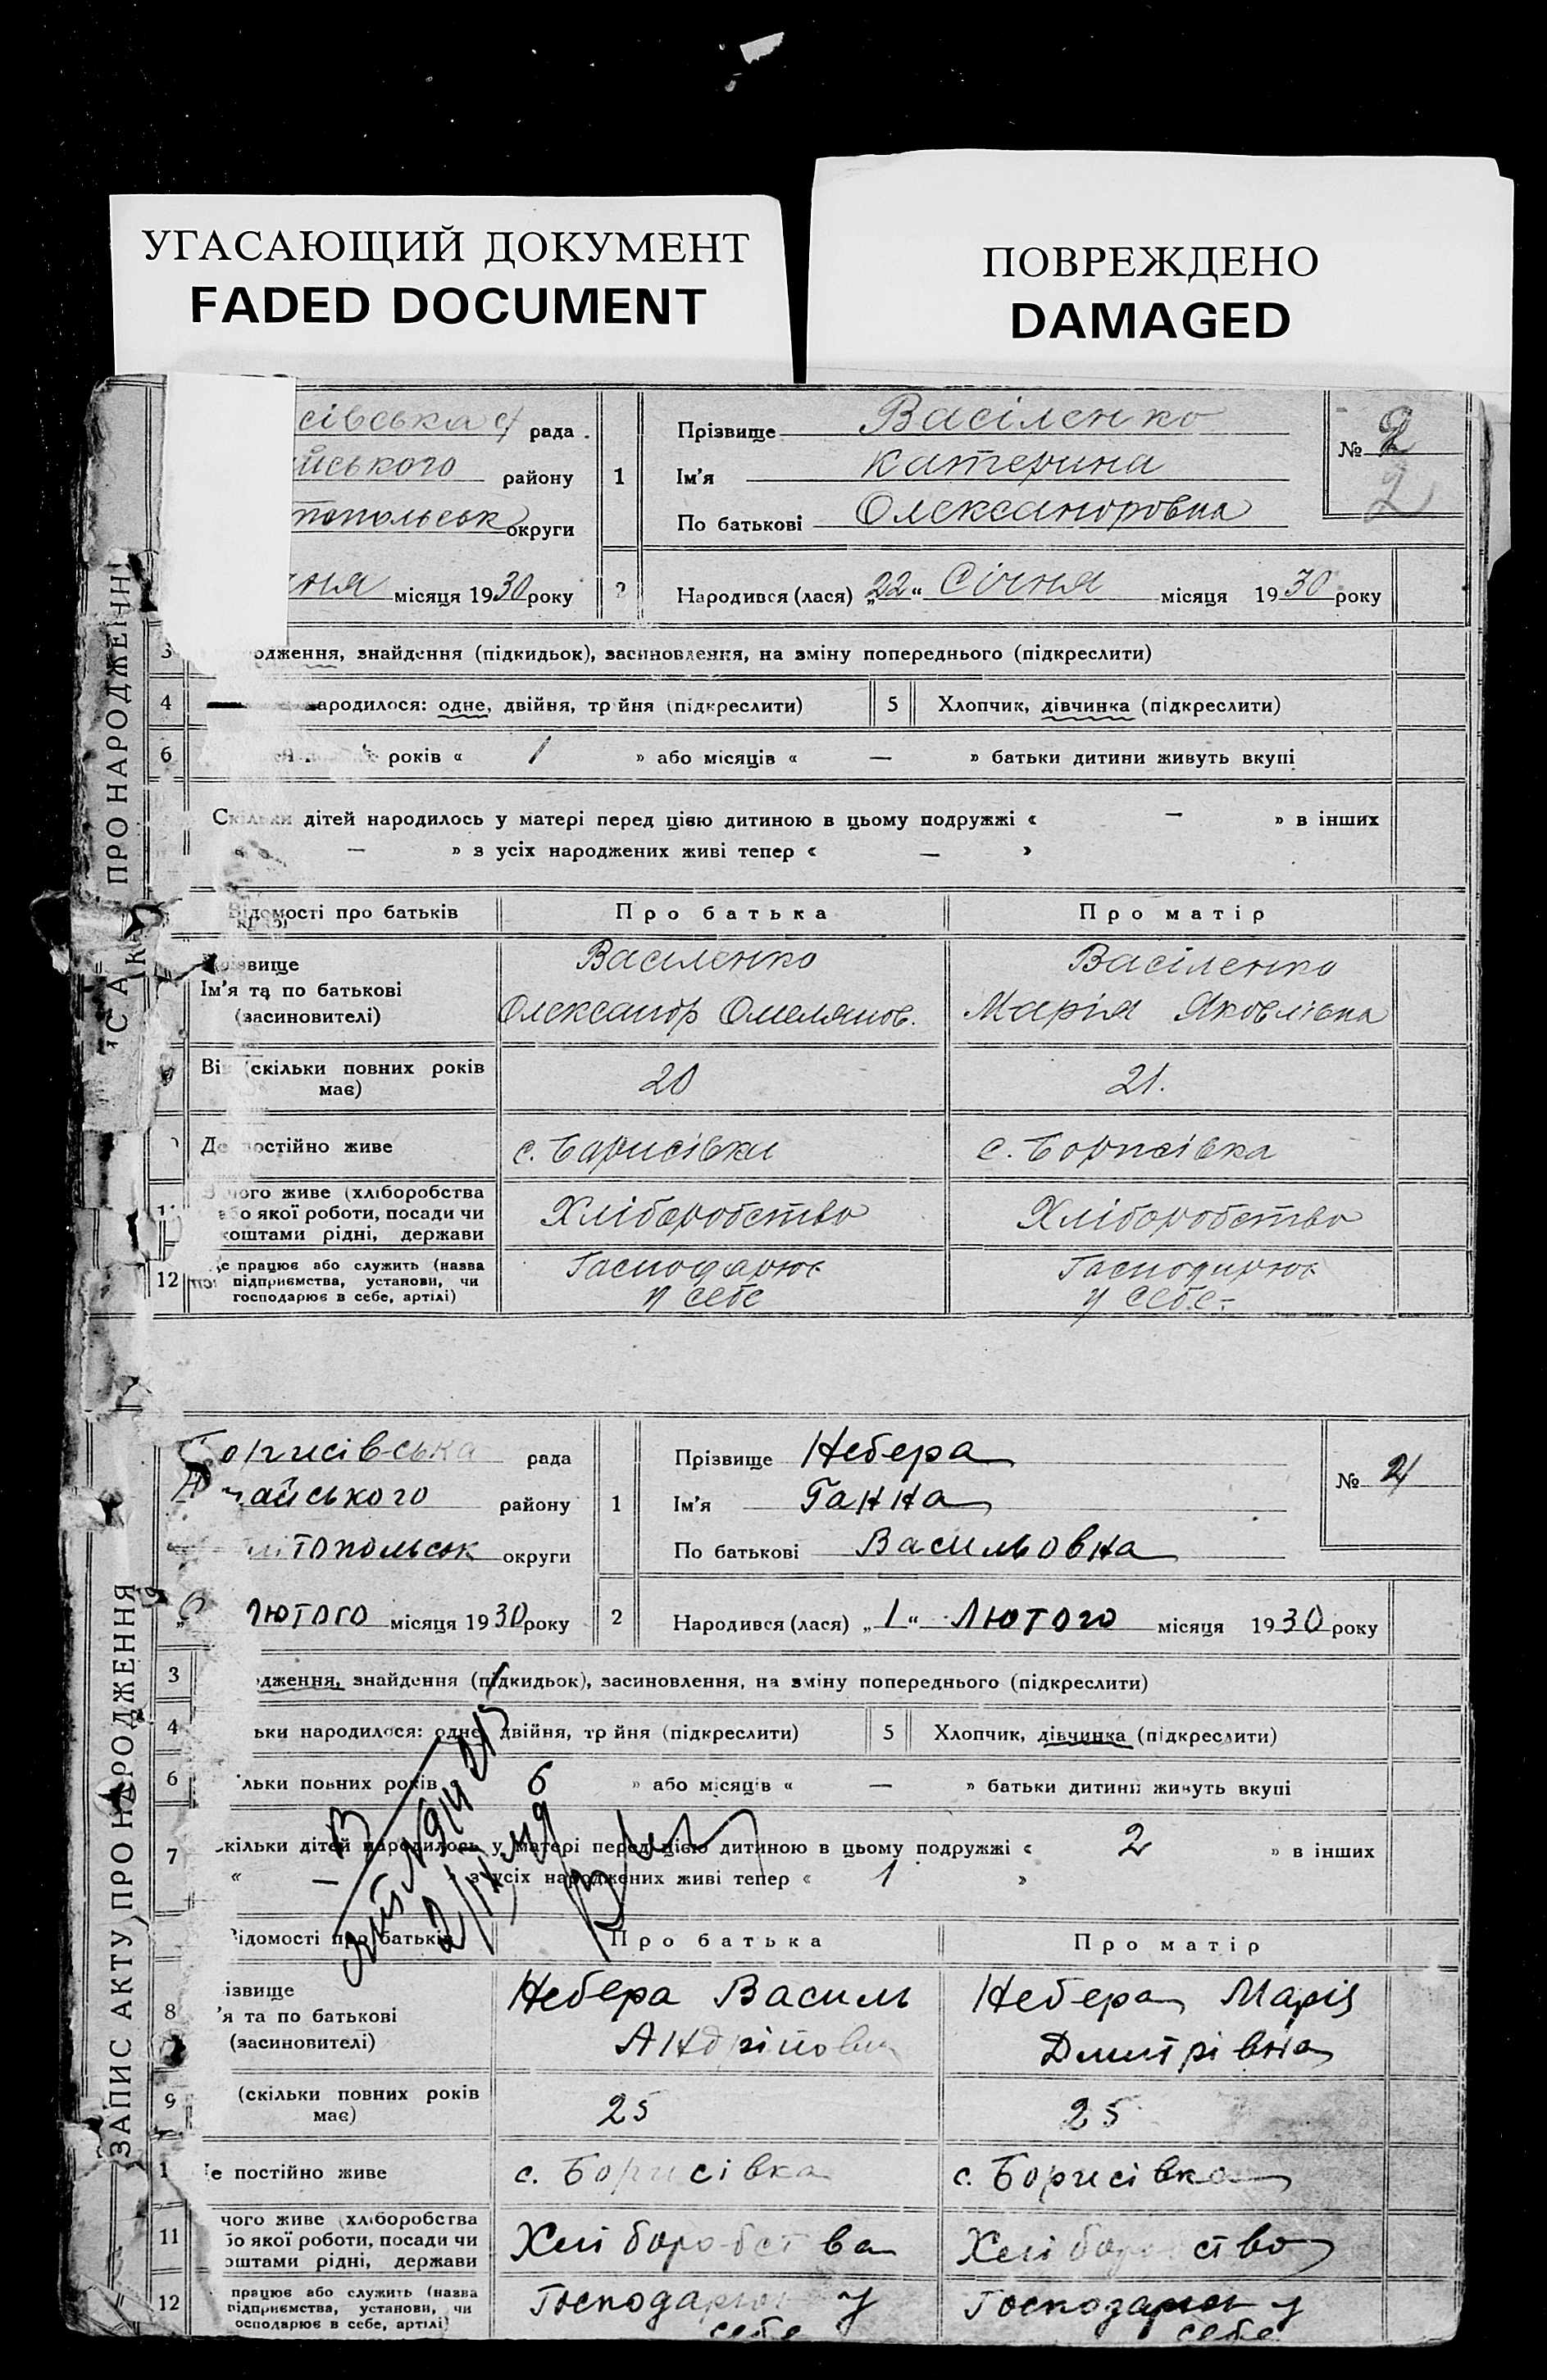 УГАСАЮЩИЙ ДОКУМЕНТ
FADED DOCUMENT
ПОВРЕЖДЕНО
DAMAGED
сівська рада .
йського району
топольськ округи
ня місяця 1930 року
1
Прізвище Василенко
Ім'я Катерина
По батькові Олександровна
№ 2
2
2
Народився (лася) „22“ Січня місяця 1930 року
3 одження, знайдення (підкидьок), засиновлення, на зміну попереднього (підкреслити)
4 ародилося: одне, двійня, тр йня (підкреслити) 5 Хлопчик, дівчинка (підкреслити)
6 років « 1 » або місяців « — » батьки дитини живуть вкупі
Скільки дітей народилось у матері перед цією дитиною в цьому подружжі « — » в інших
— » з усіх народжених живі тепер « — »
Відомості про батьків Про батька Про матір
Прізвище Василенко Васіленко
Ім'я та по батькові Олександр Омелянов. Марія Яковлівна
(засиновителі)
Вік (скільки повних років має) 20 21.
Де постійно живе с. Борисівки с. Борисівка
З чого живе (хліборобства
або якої роботи, посади чи Хліборобство Хліборобство
коштами рідні, держави
12 де працює або служить (назва Господарює Господарює
підприємства, установи, чи у себе у себе-
господарює в себе, артілі)
ПРО НАРОДЖЕНН
Борисівська рада
айського району
ітопольськ округи
лютого місяця 1930 року
1
Прізвище Небера
Ім'я Ганна
По батькові Васильовна
№ 21
2
Народився (лася) „1“ Лютого місяця 1930 року
3 дження, знайдення (підкидьок), засиновлення, на зміну попереднього (підкреслити)
4 ьки народилося: одне, двійня, тр йня (підкреслити) 5 Хлопчик, дівчинка (підкреслити)
6 льки повних років 6 » або місяців « — » батьки дитини живуть вкупі
7 кільки дітей народилось у матері перед цією дитиною в цьому подружжі « 2 » в інших
« — » з усіх народжених живі тепер « 1 »
Відомості про батьків Про батька Про матір
8 ізвище Небера Василь Небера Марія
'я та по батькові Андрійович Дмитрівна
(засиновителі)
9 (скільки повних років має) 25 25
е постійно живе с. Борисівка с. Борисівка
11 чого живе (хліборобства
бо якої роботи, посади чи Хліборобства Хліборобство
оштами рідні, держави
12 працює або служить (назва Господарює у Господарює у
підприємства, установи, чи себе себе
осподарює в себе, артілі)
ЗАПИС АКТУ ПРО НАРОДЖЕННЯ